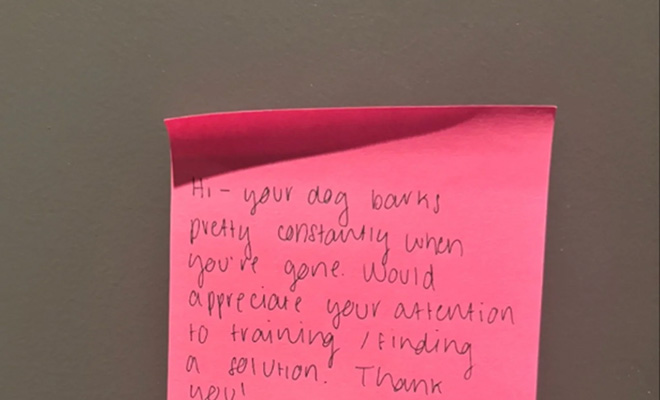 Hi - your dog barks
pretty constantly when
you're gone. Would
appreciate your attention
to training / finding
a solution. Thank
you!